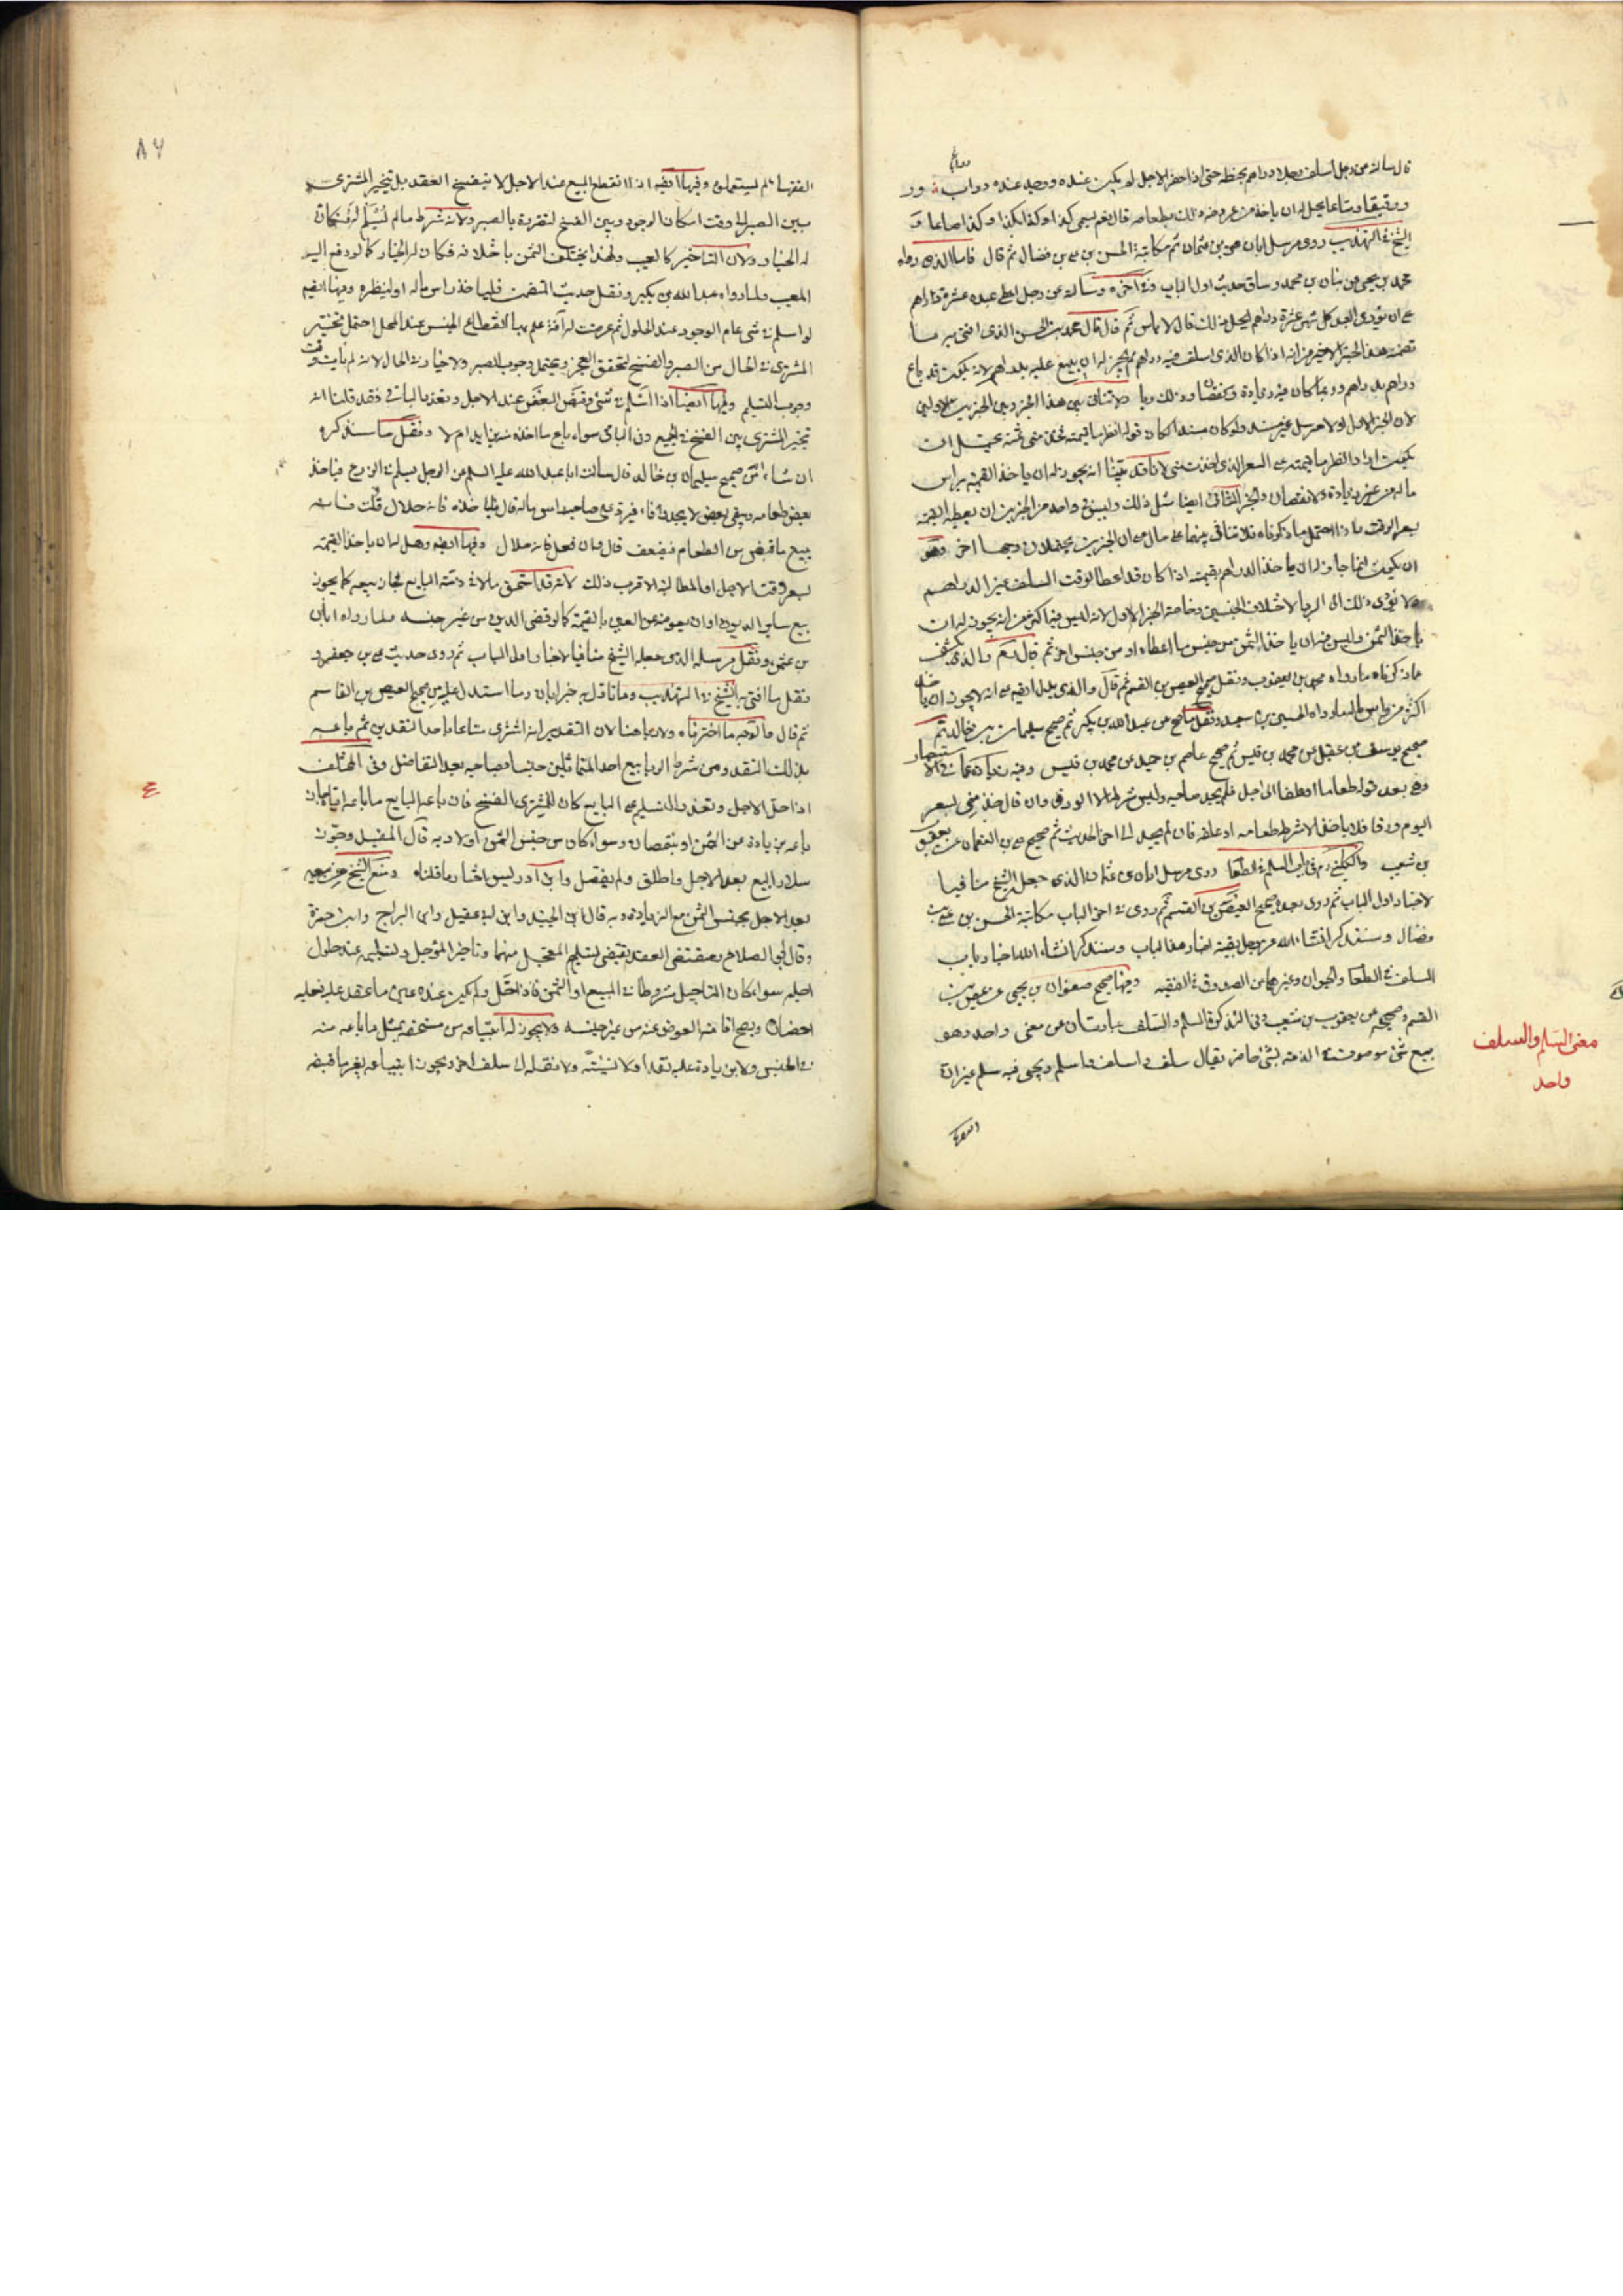 قال سالته عن رجل اسلف رجلا دراهم بحنطة حتى اذا حضر الاجل لم يكن عنده ووجد عنده دواب و
ورقيقا ومتاعا يحل له ان ياخذ من عروضه ذلك بطعامه قال نعم يسمى كذا وكذا بكذا وكذا صاعا و
الشيخ في التهذيب روى مرسل ابان بن عثمان ثم مكاتبة الحسن بن علي بن فضال ثم قال فاما الذي رواه
محمد بن يحيى عن بنان بن محمد وساق حديث اول الباب وسالته عن رجل اعطى عبده عشرة دراهم
على ان يؤدى العبد كل شهر عشرة دراهم ايحل ذلك قال لا باس ثم قال قال محمد بن الحسن الذي افتى به ما
تضمنه هذا الخبر الاخير من انه اذا كان الذي اسلف فيه دراهم لم يجز له ان يبيع عليه بدراهم لانه يكون قد باع
دراهم بدراهم وربما كان فيه زيادة ونقصان وذلك ربا ولا تنافى بين هذا الخبر وبين الخبرين الاولين
لان الخبر الاول اولا مرسل غير مسند ولو كان مسندا لكان قوله انظر ما قيمته فخذ منى ثمنه يحتمل ان
يكون اراد انظر ما قيمته على السعر الذي اخذت منى لانا قد بينا انه يجوز له ان ياخذ القيمة براس
ماله من غير زيادة ولا نقصان والخبر الثاني ايضا مثل ذلك وليس في واحد من الخبرين ان يعطيه القيمة
بسعر الوقت فاذا احتمل ما ذكرناه فلا تنافى بينهما على حال على ان الخبرين يحتملان وجها اخر وهو
ان يكون انما جاز له ان ياخذ الدراهم بقيمته اذا كان قد اعطاه وقت السلف غير الدراهم
ولا يؤدى ذلك الى الربا لاختلاف الجنسين وخاصة الخبر الاول لانه ليس فيه اكثر من انه يجوز له ان
ياخذ الثمن وليس فيه ان ياخذ الثمن من جنس ما اعطاه او من جنس اخر ثم قال والذي يكشف
عما ذكرناه ما رواه محمد بن يعقوب ونقل صحيح العيص بن القسم ثم قال والذي يدل ايضا على انه لا يجوز ان ياخذ
اكثر من راس ماله ما رواه الحسين بن سعيد ونقل عن عبد الله بن بكير ثم صحيح سليمان بن خالد ثم
صحيح يوسف بن عقيل عن محمد بن قيس ثم صحيح عاصم بن حميد عن محمد بن قيس وفيه زيادة
وهي بعد قوله طعاما او علفا الى اجل فلم يجد صاحبه وليس شرطه الا الورق وان قال خذ منى بسعر
اليوم ورقا فلا ياخذ الا شرطه طعامه او علفه فان لم يجد ثم صحيح علي بن النعمان عن يعقوب
بن شعيب والكليني في باب السلم في الطعام روى مرسل ابان بن عثمان الذي جعل الشيخ منافيا
لاخبار اول الباب ثم روى بعده صحيح العيص بن القسم ثم روى في اخر الباب مكاتبة الحسن بن علي بن
فضال وسنذكر انشاء الله عز وجل بقية اخبار هذا الباب وسنذكر انشاء الله اخبار باب
السلف في الطعام والحيوان وغيرهما من الصدوق في الفقيه وفيها صحيح صفوان بن يحيى عن عيص بن
القسم وصحيحه عن يعقوب بن شعيب وفي التذكرة السلم والسلف عبارتان عن معنى واحد وهو
بيع شئ موصوف في الذمة بشئ حاضر يقال سلف واسلف واسلم ويجى فيه سلم غير ان
معنى السلم والسلف
واحد
الفقها
٨٧
الفقها لم يستعملوه وفيها ايضا اذا انقطع المبيع عند الاجل لا ينفسخ العقد بل يتخير المشترى
بين الصبر الى وقت امكان الوجود وبين الفسخ لتضرره بالصبر ولانه شرط ما لم يسلم له فكان
له الخيار ولان التاخير كالعيب ولهذا يختلف الثمن باختلافه فكان له الخيار كما لو دفع اليه
المعيب ولما رواه عبد الله بن بكير ونقل حديث المتضمن فلياخذ راس ماله او لينظره وفيها ايضا
لو اسلم في شى عام الوجود عند الحلول ثم عرضت له آفة علم بها انقطاع الجنس عند المحل احتمل تخيير
المشترى في الحال بين الصبر والفسخ لتحقق العجز ويحتمل وجوب الصبر ولا خيار في الحال لانه لم يات وقت
وجوب التسليم وفيها ايضا اذا اسلم في شئ وقبض البعض عند الاجل وتعذر الباقى فقد قلنا انه
تخير المشترى بين الفسخ في الجميع دون الباقي سواء باع ما اخذه بزيادة ام لا ونقل ما سنذكره
ان شاء الله صحيح سليمان بن خالد قال سالت ابا عبد الله عليه السلم عن الرجل يسلم في الزرع فياخذ
بعض طعامه ويبقى بعض لا يجد وفاء فيرد على صاحبه راس ماله قال فلياخذه فانه حلال قلت فانه
يبيع ما قبض من الطعام فيضعف قال وان فعل فانه حلال وفيها ايضا وهل له ان ياخذ القيمة
بسعر وقت الاجل او المطالبة الاقرب ذلك لانه قد استحق مالا في ذمة البايع فجاز بيعه كما يجوز
بيع ساير الديون او ان يعوض عن العين بالقيمة كما لو قضى الدين من غير جنسه ولما رواه ابان
بن عثمن ونقل مرسله الذي جعله الشيخ منافيا لاخبار اول الباب ثم روى حديث علي بن جعفر و
نقل ما افتى به الشيخ في التهذيب وما تاول به خبر ابان وما استدل عليه من صحيح العيص بن القاسم
ثم قال والوجه ما اخترناه ولا ربا هنا لان التقدير انه اشترى متاعا باحد النقدين ثم باعه
بذلك النقد ومن شرط الربا بيع احد المتماثلين جنسا بصاحبه بعد التفاضل وفى المختلف
اذا حل الاجل وتعذر التسليم على البايع كان للمشترى الفسخ فان باعه البايع ما باعه اياه جاز
باعه بزيادة عن الثمن او نقصان وسواء كان من جنس الثمن او لا وبه قال المفيد وجوز
سلار البيع بعد الاجل واطلق ولم يفصل وابن ادريس اختار ما قلناه ومنع الشيخ من بيعه
بعد الاجل بجنس الثمن مع الزيادة وبه قال ابن الجنيد وابن ابي عقيل وابن البراج وابن حمزة
وقال ابو الصلاح مقتضى العقد يقتضى تسليم المعجل منهما وتاخير المؤجل وتسليمه عند حلول
اجله سواء كان التاجيل شرطا في المبيع او الثمن فاذا حل ولم يكن عنده عين ما عقد عليه فعليه
احضاره ويصح اقامة العوض عنه من غير جنسه ولا يجوز له ابتياعه من مستحقه بمثل ما باعه منه
في الجنس ولا بزيادة عليه نقدا ولا نسيئة ولا نقله الى سلف اخر ويجوز ابتياعه بغير ما قبضه
ع